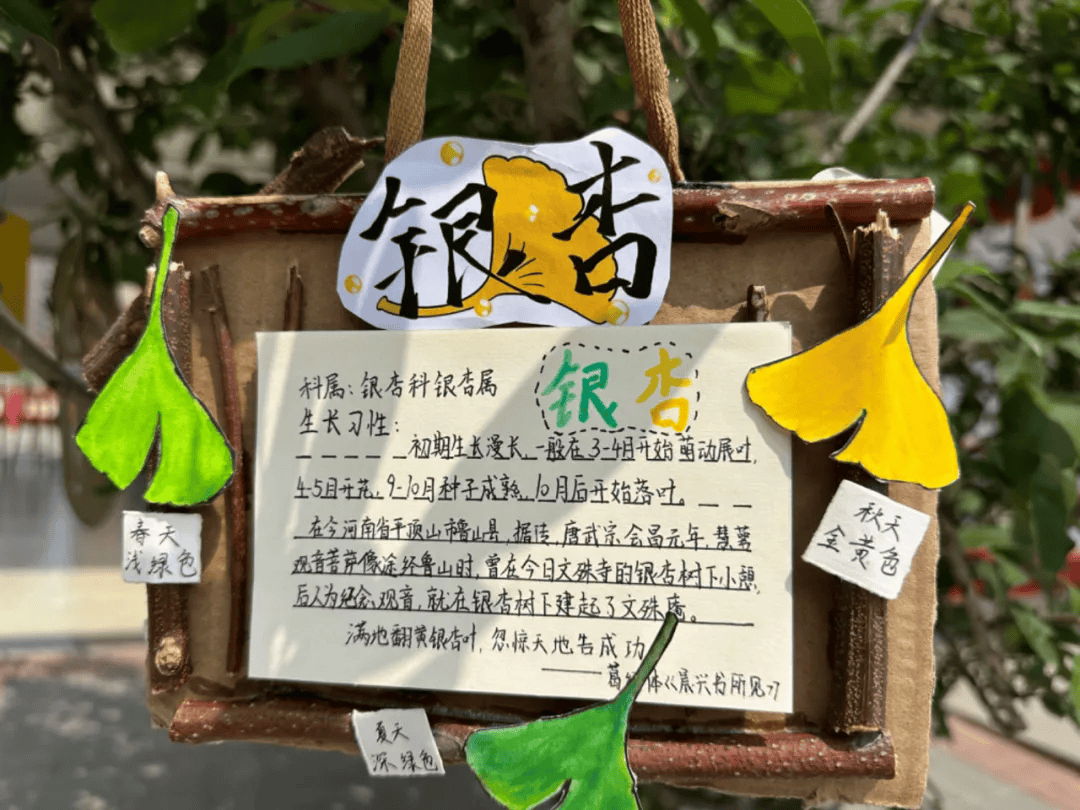 银杏
银杏
科属：银杏科银杏属
生长习性：
初期生长漫长，一般在3-4月开始萌动展叶，
4-5月开花，9-10月种子成熟，10月后开始落叶。
在今河南省平顶山市鲁山县，据传，唐武宗会昌元年，慧萼
观音菩萨像途经鲁山时，曾在今日文殊寺的银杏树下小憩，
后人为纪念观音，就在银杏树下建起了文殊庵。
满地翻黄银杏叶，忽惊天地告成功
体《晨兴书所见》
春天
浅绿色
秋天
金黄色
夏天
深绿色